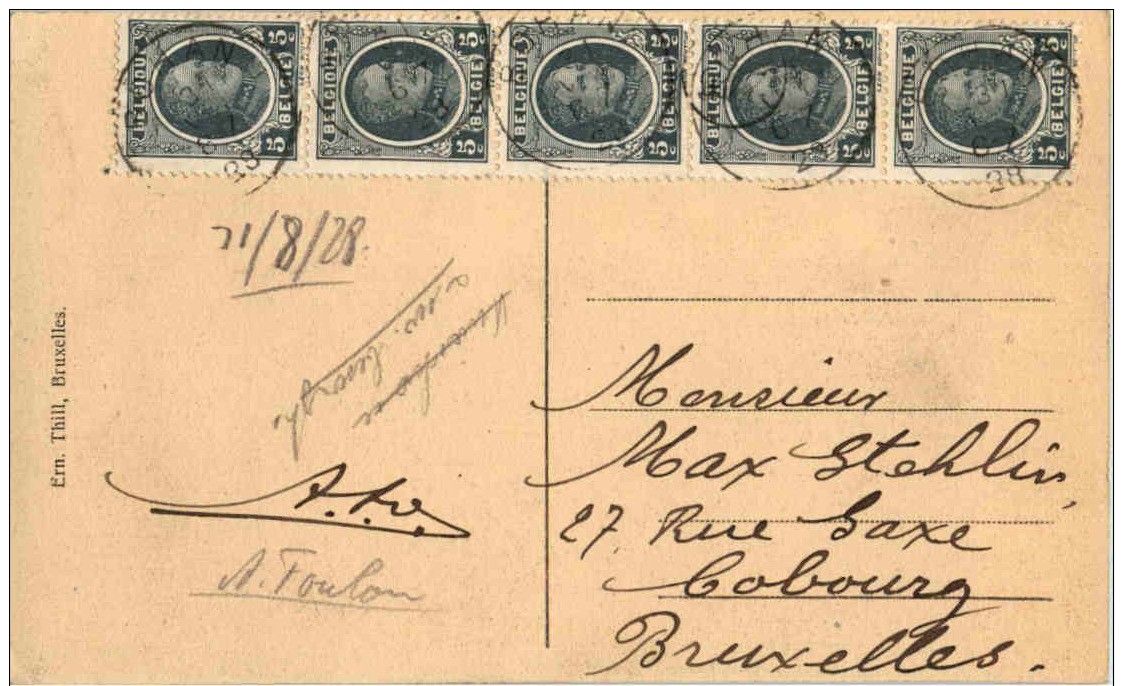 BELGIQUE 5c 5c BELGIË
BELGIQUE 5c 5c BELGIË
BELGIQUE 5c 5c BELGIË
BELGIQUE 5c 5c BELGIË
BELGIQUE 5c 5c BELGIË
28
28
/8/28.
Ern. Thill, Bruxelles.
A. Foulon
Monsieur
Max Stehlin,
27, Rue Saxe
Cobourg
Bruxelles.